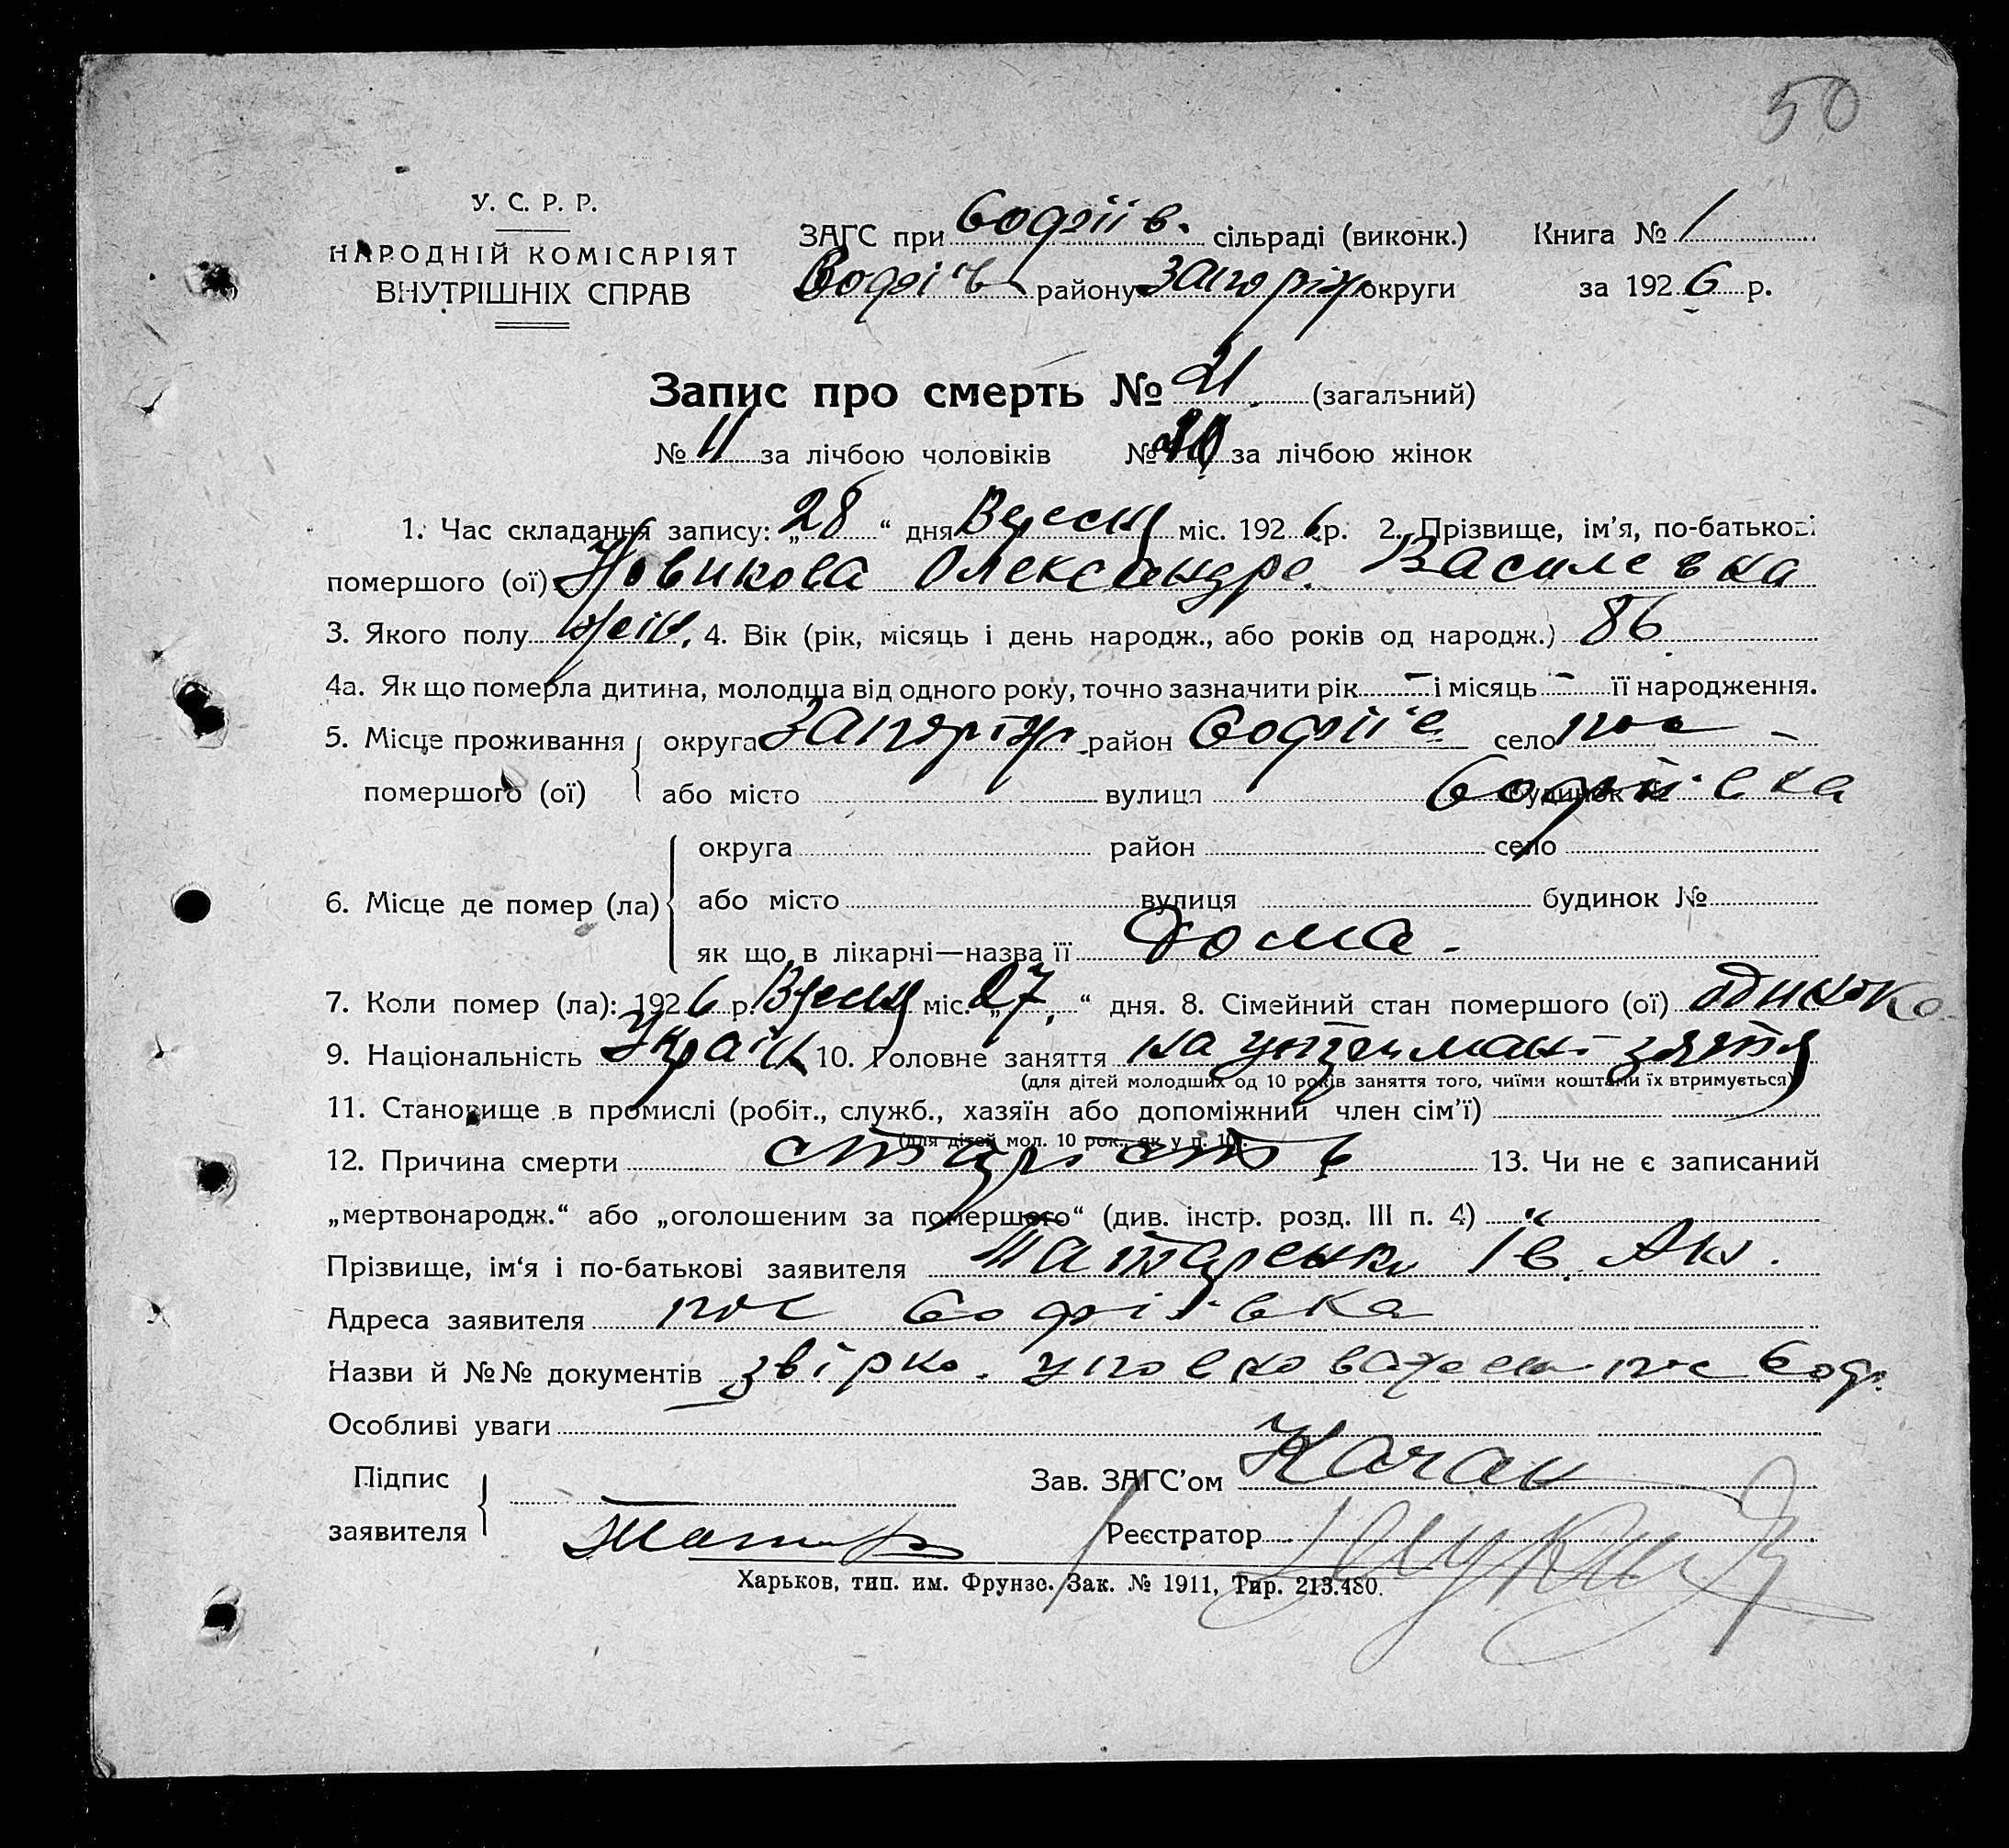 50
У. С. Р. Р.
НАРОДНІЙ КОМІСАРІЯТ
ВНУТРІШНІХ СПРАВ
ЗАГС при Софіїв. сільраді (виконк.) Книга № 1
Софіїв району Запоріж округи за 1926 р.
Запис про смерть № 21. (загальний)
№ 11 за лічбою чоловіків № за лічбою жінок
1. Час складання запису: „28“ дня Вересн міс. 1926 р. 2. Прізвище, ім'я, по-батькові
помершого (ої) Новикова Олександра Василевна
3. Якого полу жін. 4. Вік (рік, місяць і день народж., або років од народж.) 86
4а. Як що померла дитина, молодша від одного року, точно зазначити рік - і місяць - її народження.
5. Місце проживання округа Запоріж район Софіїв село пос
помершого (ої) або місто вулиця будинок № Софіївка
округа район село
6. Місце де помер (ла) або місто вулиця будинок №
як що в лікарні—назва її Дома.
7. Коли помер (ла): 1926 р. Вересн міс. „27“ дня. 8. Сімейний стан помершого (ої) одинока
9. Національність Україн 10. Головне заняття на утриман зятя
(для дітей молодших од 10 років заняття того, чиїми коштами їх втримується)
11. Становище в промислі (робіт., служб., хазяїн або допоміжний член сім'ї)
(для дітей мол. 10 рок., як у п. 10).
12. Причина смерти старість 13. Чи не є записаний
„мертвонародж.“ або „оголошеним за помершого“ (див. інстр. розд. III п. 4) "
Прізвище, ім'я і по-батькові заявителя Татаренко Ів. Ак.
Адреса заявителя пос Софіївка
Назви й №№ документів звірко. пос Соф.
Особливі уваги
Підпис Зав. ЗАГС'ом Качан
заявителя Реєстратор
Харьков, тип. им. Фрунзе. Зак. № 1911, Тир. 213.480.